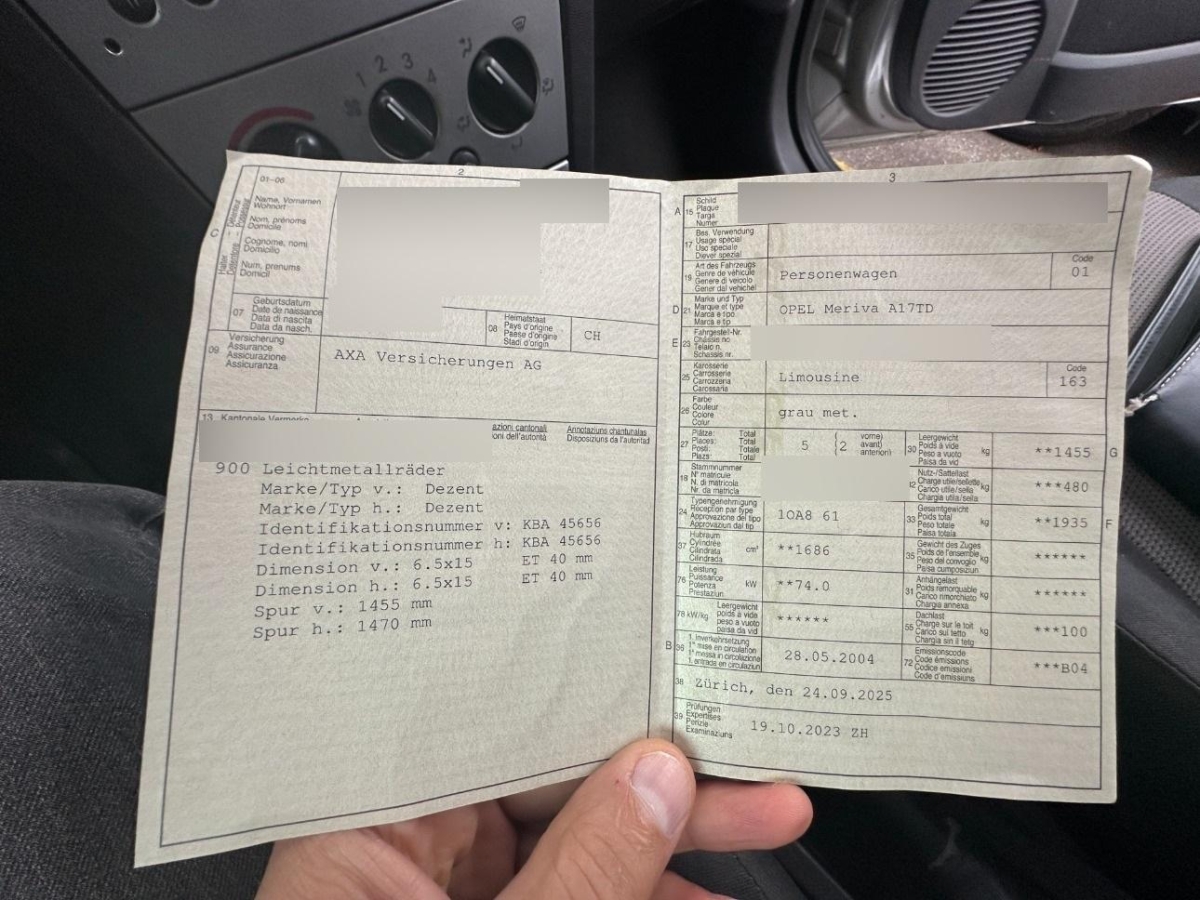 1 2 3 4
2
01-06
Name, Vornamen
Wohnort
Nom, prénoms
Domicile
Cognome, nomi
Domicilio
Num, prenums
Domicil
C
07
Geburtsdatum
Date de naissance
Data di nascita
Data da nasch.
08
Heimatstaat
Pays d'origine
Paese d'origine
Stadi d'origin
CH
09
Versicherung
Assurance
Assicurazione
Assicuranza
AXA Versicherungen AG
13 Kantonale Vermerke
azioni cantonali
ioni dell'autorità
Annotaziuns chantunalas
Disposiziuns da l'autoritad
900 Leichtmetallräder
Marke/Typ v.: Dezent
Marke/Typ h.: Dezent
Identifikationsnummer v: KBA 45656
Identifikationsnummer h: KBA 45656
Dimension v.: 6.5x15 ET 40 mm
Dimension h.: 6.5x15 ET 40 mm
Spur v.: 1455 mm
Spur h.: 1470 mm
3
A 15
Schild
Plaque
Targa
Numer
17
Bes. Verwendung
Usage spécial
Uso speciale
Diever spezial
19
Art des Fahrzeugs
Genre de véhicule
Genere di veicolo
Gener dal vehichel
Personenwagen
Code
01
D 21
Marke und Typ
Marque et type
Marca e tipo
Marca e tip
OPEL Meriva A17TD
E 23
Fahrgestell-Nr.
Châssis no
Telaio n.
Schassis nr.
25
Karosserie
Carrosserie
Carrozzeria
Carossaria
Limousine
Code
163
26
Farbe
Couleur
Colore
Colur
grau met.
27
Plätze: Total
Places: Total
Posti: Totale
Plazs: Total
5 (2
vorne)
avant)
anteriori)
30
Leergewicht
Poids à vide
Peso a vuoto
Paisa da vid
kg
**1455
G
18
Stammnummer
N° matricule
N. di matricola
Nr. da matricla
12
Nutz-/Sattellast
Charge utile/sellette
Carico utile/sella
Chargia utila/sella
kg
***480
24
Typengenehmigung
Réception par type
Approvazione del tipo
Approvaziun dal tip
1OA8 61
33
Gesamtgewicht
Poids total
Peso totale
Paisa totala
kg
**1935
F
37
Hubraum
Cylindrée
Cilindrata
Cilindrada
cm³
**1686
35
Gewicht des Zuges
Poids de l'ensemble
Peso del convoglio
Paisa cumposiziun
kg
******
76
Leistung
Puissance
Potenza
Prestaziun
kW
**74.0
31
Anhängelast
Poids remorquable
Carico rimorchiato
Chargia annexa
kg
******
78 kW/kg
Leergewicht
poids à vide
peso a vuoto
paisa da vid
******
55
Dachlast
Charge sur le toit
Carico sul tetto
Chargia sin il tetg
kg
***100
B 36
1. Inverkehrsetzung
1re mise en circulation
1a messa in circolazione
1. entrada en circulaziun
28.05.2004
72
Emissionscode
Code émissions
Codice emissioni
Code d'emissiuns
***B04
38
Zürich, den 24.09.2025
39
Prüfungen
Expertises
Perizie
Examinaziuns
19.10.2023 ZH